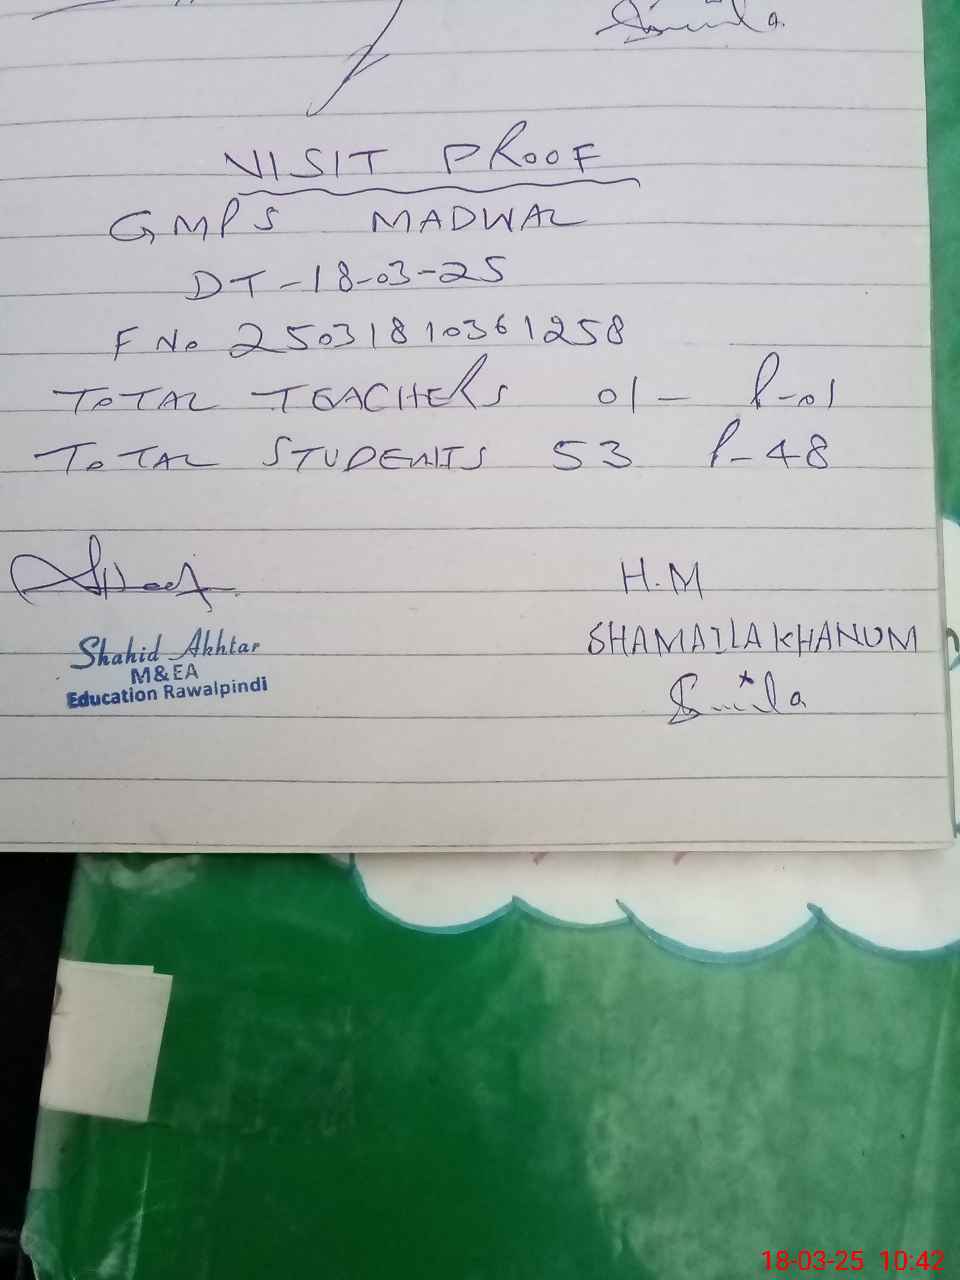 VISIT PROOF
GMPS MADWAL
DT-18-03-25
F No 2503181036 1258
TOTAL TEACHERS 01- P-01
TOTAL STUDENTS 53 P-48
H.M
SHAMAILA KHANUM
Shahid Akhtar
M&EA
Education Rawalpindi
18-03-25 10:42